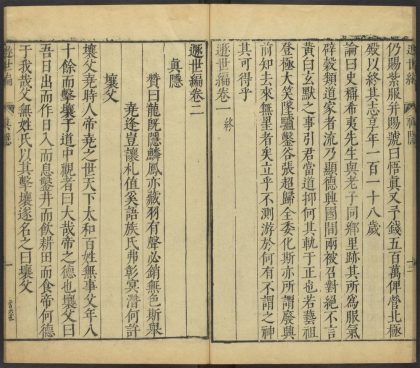 遯世編
仍賜紫服幷賜號曰悟眞又予錢五百萬俾營北極
殿以終其志享年一百一十八歲
論曰史稱希夷先生與老子同鄉里跡其所爲服氣
辟穀類道家者流乃顯德興國間兩被召對絶不言
黃白玄默之事引君當道抑何其軌于正也若藝祖
登極大笑墜驢鑿谷張超歸全委化斯亦所謂廢興
前知去來無罣者矣立乎不測游於何有不謂之神
其可得乎
遯世編卷一 終
遯世編卷二
眞隱
贊曰龍旣隱鱗鳳亦藏羽有聲必銷無色斯舉
堯逢豈讓札值奚語族氏弗彰冥潛何許
壤父
壤父堯時人帝堯之世天下太和百姓無事父年八
十餘而擊壤于道中觀者曰大哉帝之德也壤父曰
吾日出而作日入而息鑿井而飲耕田而食帝何德
于我哉父無姓氏以其擊壤遂名之曰壤父
遯世編 眞隱 一